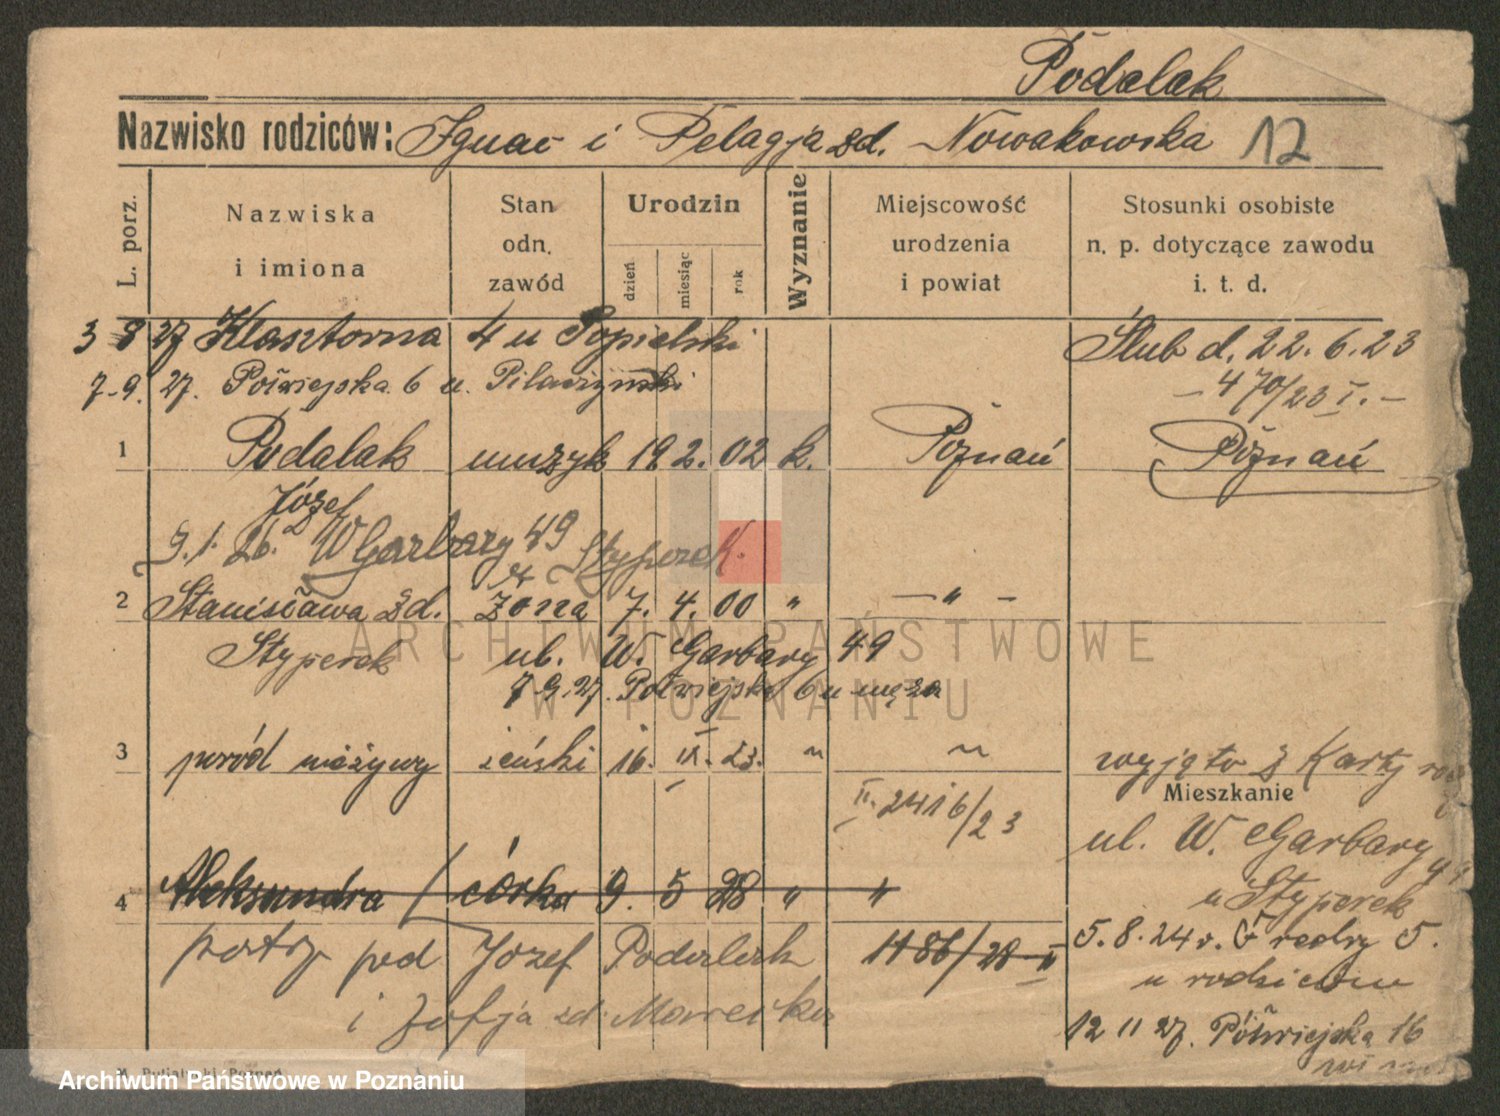 Podalak
Nazwisko rodziców: Ignac i Pelagja zd. Nowakowska 12
L. porz.
Nazwiska i imiona
Stan odn. zawód
Urodzin
dzień
miesiąc
rok
Wyznanie
Miejscowość urodzenia i powiat
Stosunki osobiste n. p. dotyczące zawodu i. t. d.
3 8 27 Klasztorna 4 u Popielski
Ślub d. 22.6.23
7-9. 27. Półwiejska 6 u. Pilaczyński
- 470/23 I. -
1 Podalak muzyk 19 2. 02 k. Poznań Poznań
Józef
9.1.26. W Garbary 49
Styperek
2 Stanisława zd. żona 7. 4. 00 " - " -
Styperek ul. W. Garbary 49
7.9.27. Półwiejska 6 u męża
3 poród nieżywy żeński 16. IX. 23. " " wyjęto z Karty
II. 2416/23
Mieszkanie
ul. W. Garbary 49
u Styperek
4 Aleksandra córka 9. 5 28 " "
5.8.24 r. 5.
patrz pod Józef Podalak 1186/28 II
u rodziców
i Zofja zd.
12 11 27. Półwiejska 16
ARCHIWUM PAŃSTWOWE
W POZNANIU
Poznań
Archiwum Państwowe w Poznaniu